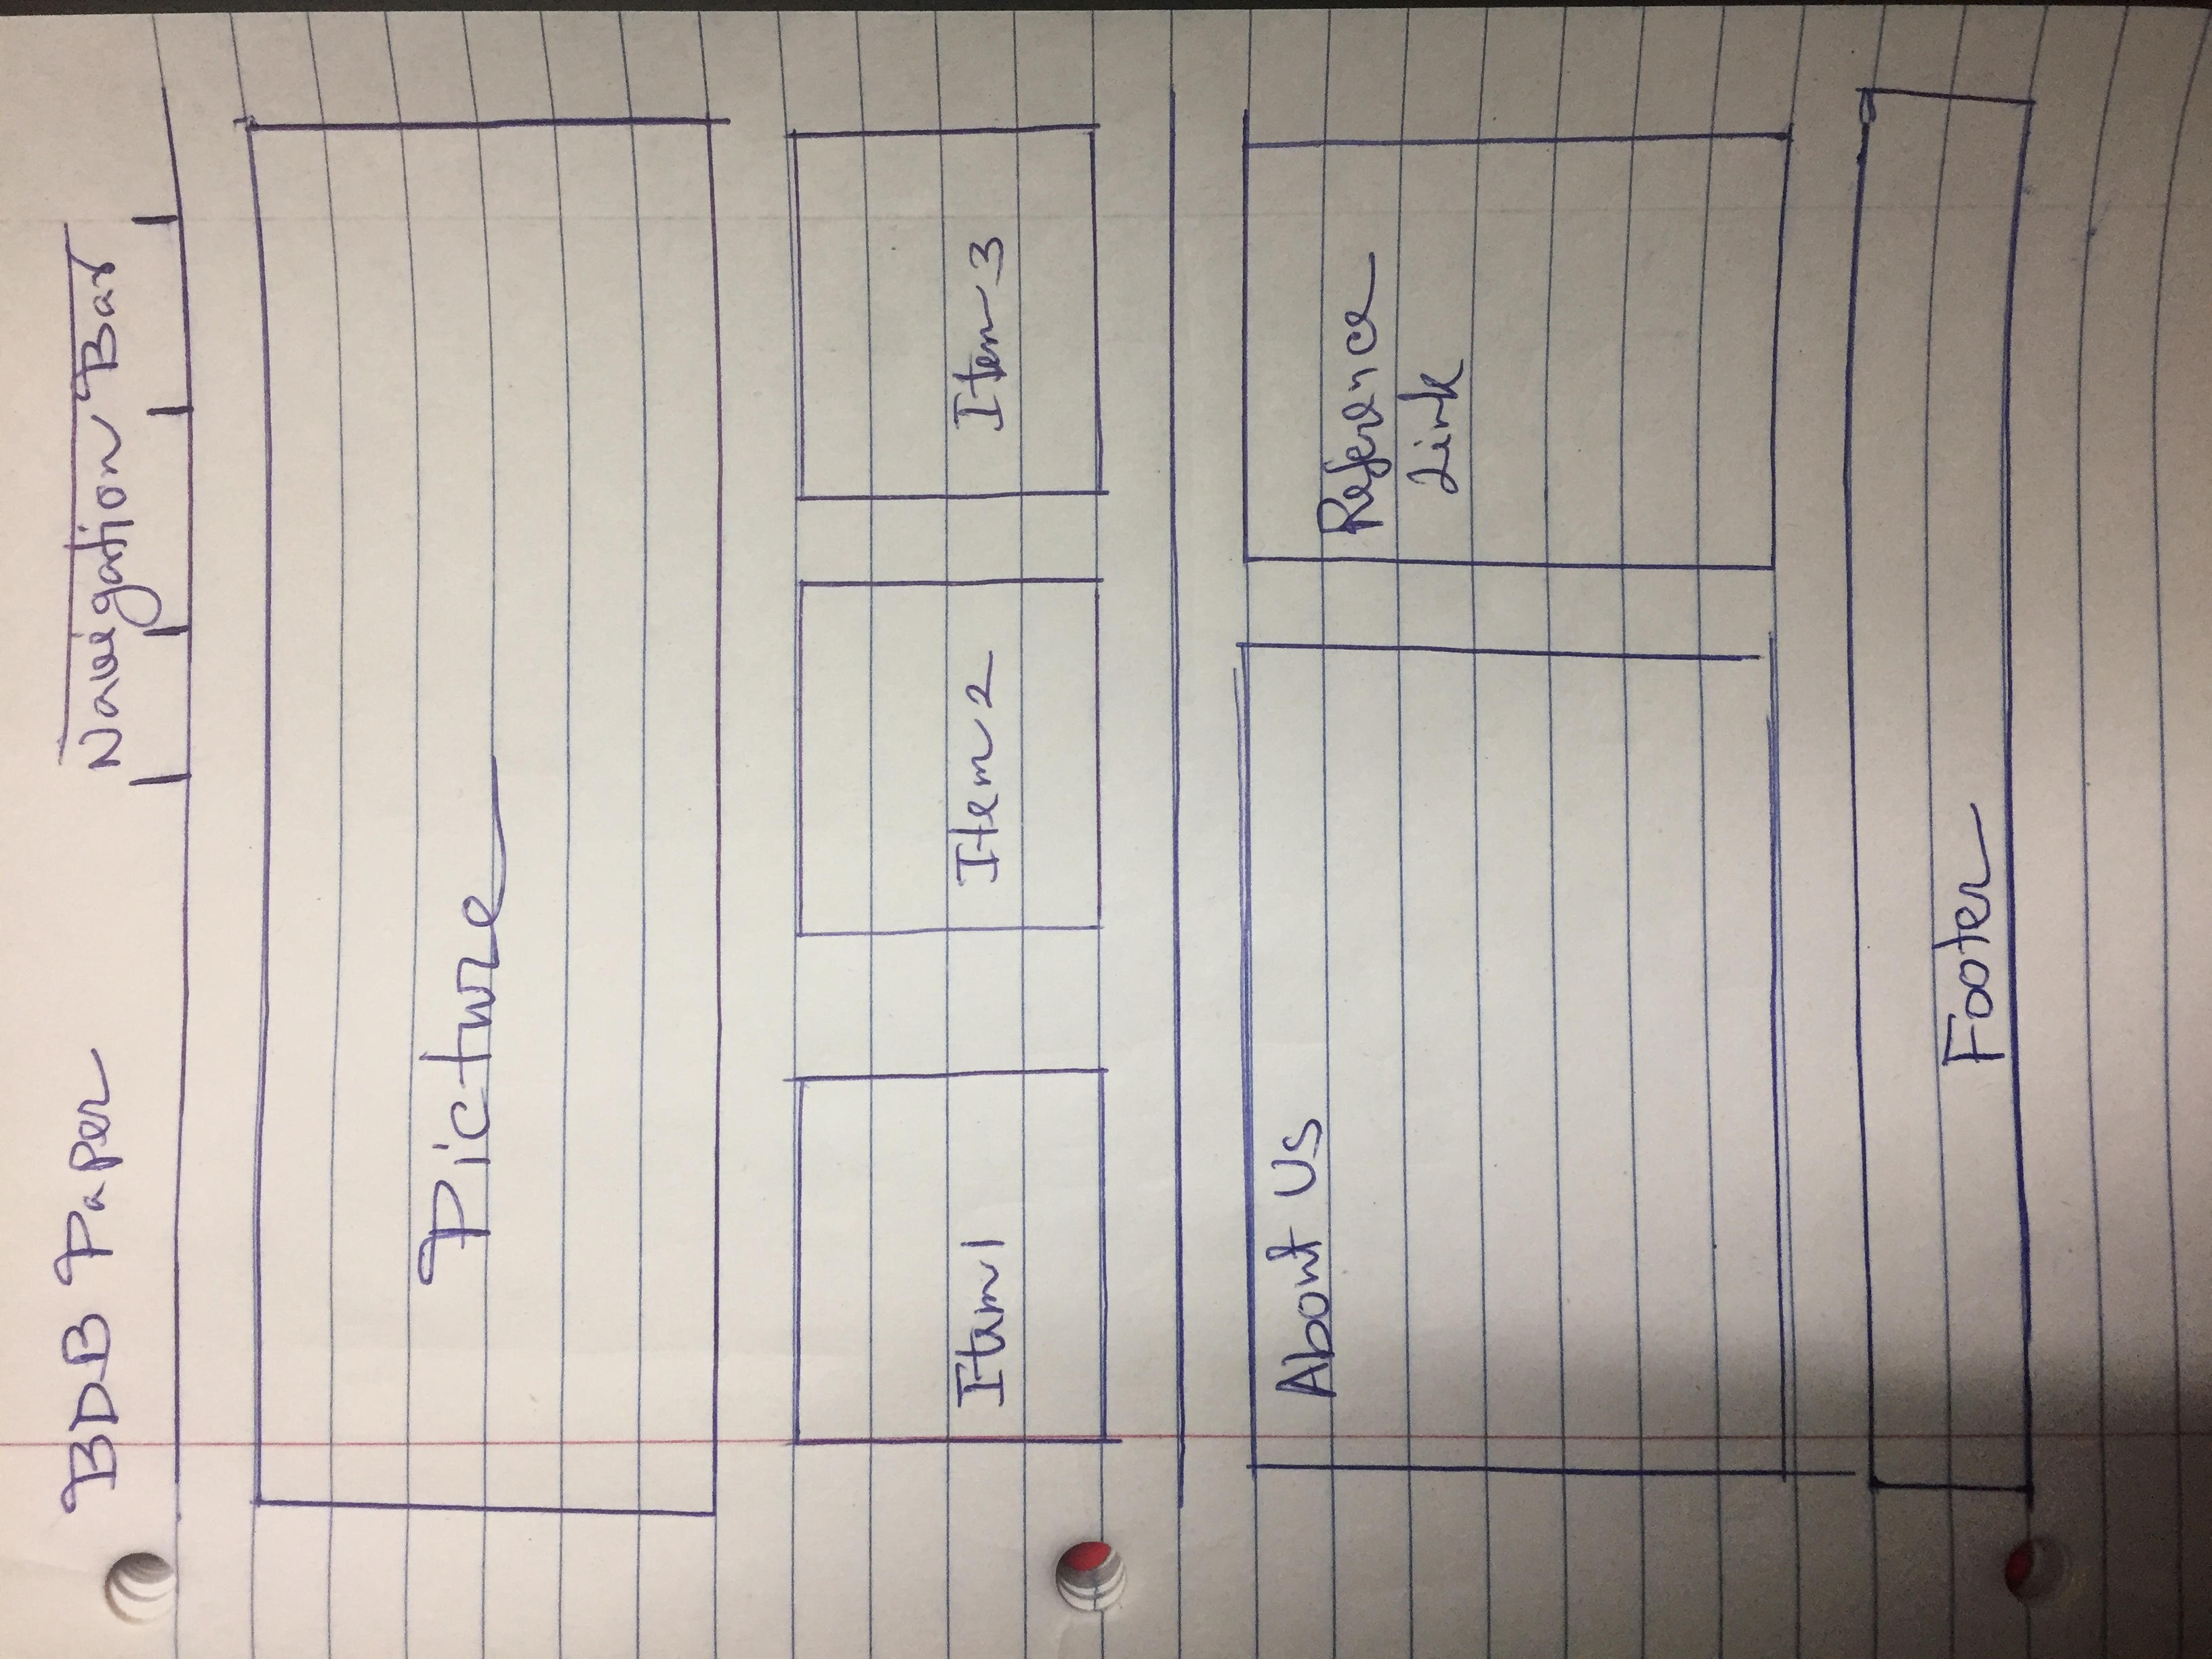 BDB Paper
Navigation Bar
Picture
Item 1
Item 2
Item 3
About Us
Reference
Link
Footer